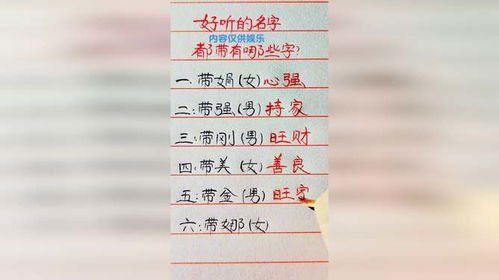 好听的名字
内容仅供娱乐
都带有哪些字?
一.带娟(女)心强
二:带强(男)持家
三:带刚(男)旺财
四:带美(女)善良
五:带金(男)旺字
六:带娜(女)